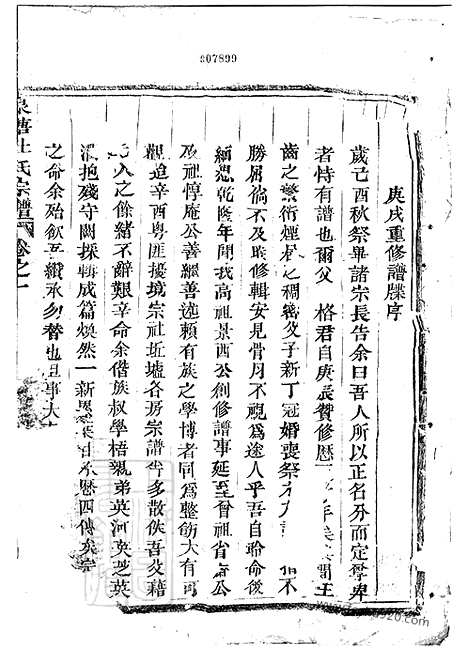 907899
庚戌重修譜牒序
歲己酉秋祭畢諸宗長告余曰吾人所以正名分而定尊卑
者恃有譜也爾父 格君自庚辰贊修歷 年 間生
齒之繁衍煙 之稠幾父子新丁冠婚喪祭 偕不
勝屈倘不及時修輯安見骨肉不視為途人乎吾自聆命後
緬想乾隆年間我高祖景西公創修譜事延至曾祖省 公
及祖惇庵公善繼善述賴有族之學博者同為整飭大有可
觀迨辛酉粵匪接境宗社坵墟各房宗譜 多散佚吾父藉
人之餘緒不辭艱辛命余偕族叔學梧親弟英河英芝英
抱殘守闕採輯成篇煥然一新 歷四傳矣宗
之命余殆飲吾 纘承勿替也且事大
氏宗譜 卷之一